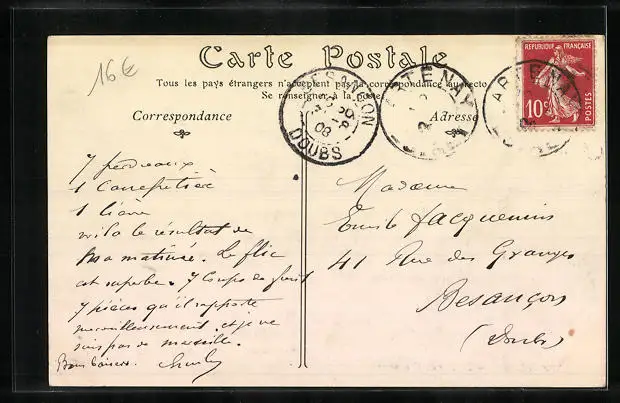 16€
Carte Postale
Tous les pays étrangers n'acceptent pas la correspondance au recto
Se renseigner à la poste
Correspondance
Adresse
BESANÇON
08
DOUBS
ARTENAY
ARTENAY
REPUBLIQUE FRANÇAISE
10c
POSTES
7 perdreaux
1
1 lièvre
voila le résultat de
ma matinée. Le flic
est superbe. 7 Coups de fusil
7 pièces qu'il rapporte
merveilleusement. et je ne
suis pas de marseille.
Bons baisers.
Madame
Emile Jacquemin
41 Rue des Granges
Besançon
(Doubs)